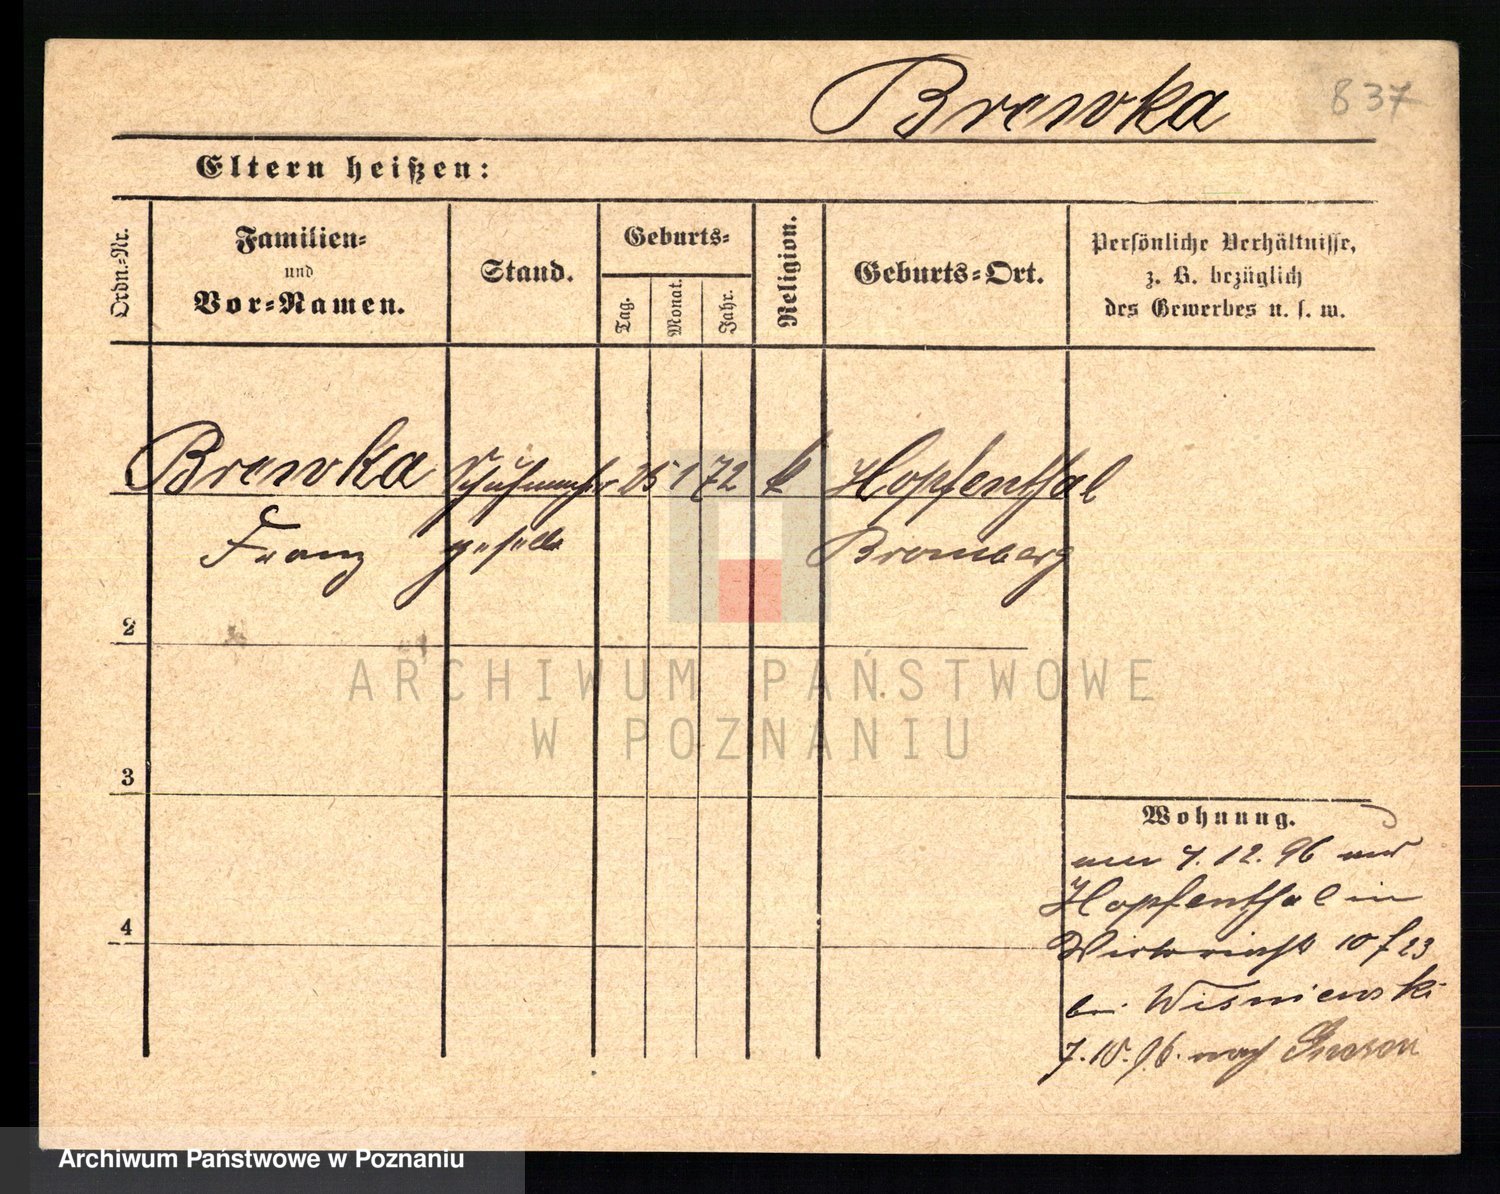 Brewka
837
Eltern heißen:
Ordn.-Nr.
Familien-
und
Vor-Namen.
Stand.
Geburts-
Tag.
Monat.
Jahr.
Religion.
Geburts-Ort.
Persönliche Verhältnisse,
z. B. bezüglich
des Gewerbes u. s. w.
Brewka Schuhmacher 25 1 72 k Hopfenthal
Franz geselle Bromberg
2
3
4
ARCHIWUM PAŃSTWOWE
W POZNANIU
Wohnung.
12. 96
Hopfenthal in
10 f 23
bei Wisniewski
7. 10. 96. nach Gnesen
Archiwum Państwowe w Poznaniu